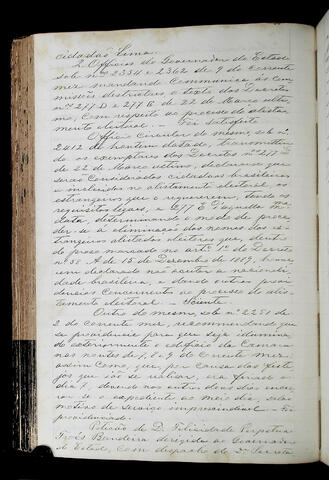 cidadão Lima.
2 Officios do Governador do Estado
sob nos 2354 e 2362 de 9 do corrente
mez mandando communicar ás com-
missões districtaes o texto dos Decretos
nos 277 D e 277 E de 22 de Março ulti-
mo, com respeito ao processo do alista-
mento eleitoral. — Foi satisfeito
Officio Circular do mesmo, sob nº
2412 de hontem datado, transmittin-
do os exemplares dos Decretos nos 277 D
de 22 de Março ultimo, declarando que
serão considerados cidadãos brasileiros
e incluidos no alistamento eleitoral, os
estrangeiros que o requererem, tendo os
requisitos legaes, e 277 E daquella mesma
data, determinando o modo de proce-
der-se á eliminação dos nomes dos es-
trangeiros alistados eleitores que, dentro
do prazo marcado no artº 1º do Decreto
nº 58 A de 15 de Dezembro de 1889, houve-
rem declarado não aceitar a nacionali-
dade brasileira, e dando outras provi-
dencias concernentes ao processo do alis-
tamento eleitoral. — Sciente.
Outro do mesmo, sob nº 2251 de
2 do corrente mez, recommendando que
se providencie para que seja illumina-
do exteriormente o edificio da Camara
nas noutes de 7, 8 e 9 do corrente mez
assim como, que por causa das festas
que vão se realisar, era
dia 7, devendo nos outros dous dias encer-
rar-se o expediente ao meio dia, salvo
motivo de serviço imprescindivel —
providenciado.
Petição de D. Felicidade Perpetua
Froes Bandeira dirigida ao Governador
do Estado, com despacho do Dr. Secreta